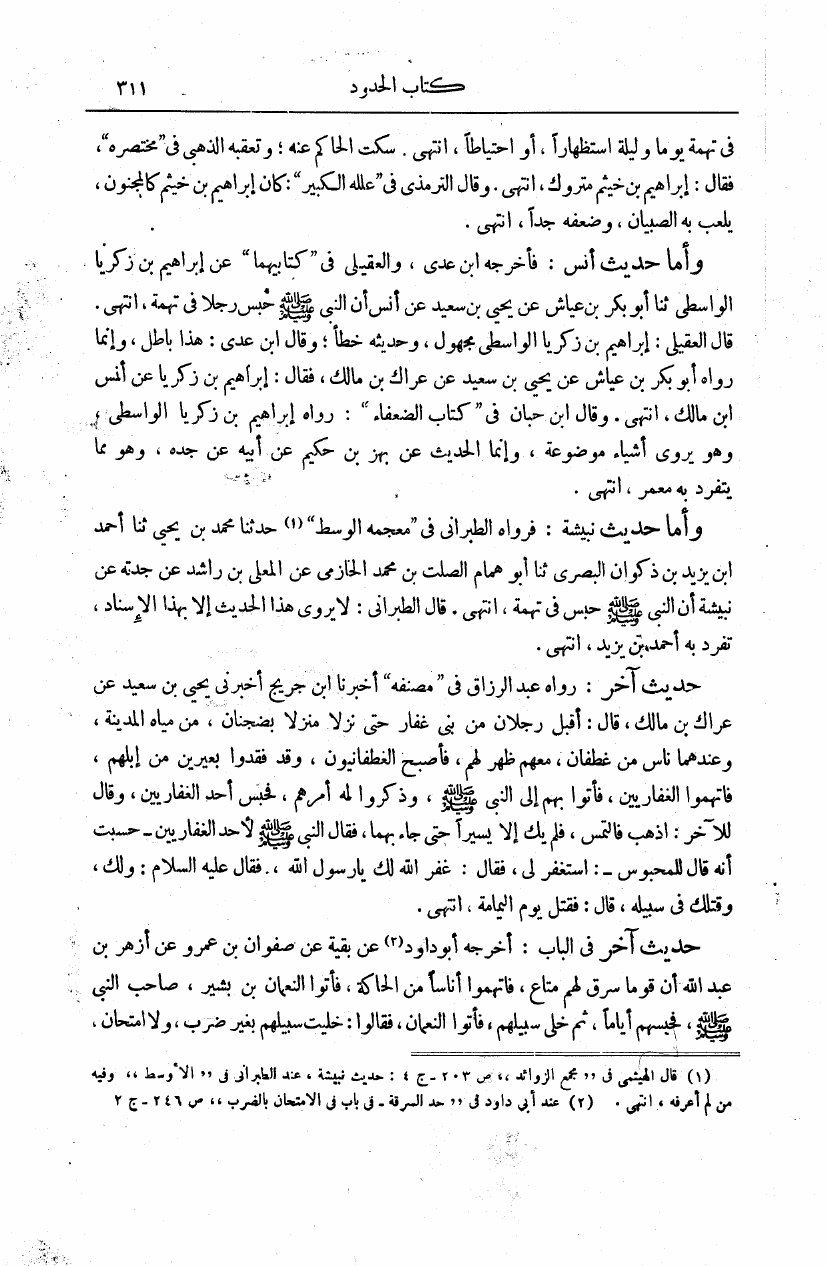 كتاب الحدود ٣١١
فى تهمة يوما وليلة استظهاراً ، أو احتياطاً ، انتهى . سكت الحاكم عنه ؛ وتعقبه الذهبى فى "مختصره"،
فقال : إبراهيم بن خيثم متروك ، انتهى . وقال الترمذى فى "علله الكبير" : كان إبراهيم بن خيثم كالمجنون ،
يلعب به الصبيان ، وضعفه جداً ، انتهى .
وأما حديث أنس : فأخرجه ابن عدى ، والعقيلى فى "كتابيهما" عن إبراهيم بن زكريا
الواسطى ثنا أبو بكر بن عياش عن يحيى بن سعيد عن أنس أن النبى ﷺ حُبس رجلا فى تهمة ، انتهى .
قال العقيلى : إبراهيم بن زكريا الواسطى مجهول ، وحديثه خطأ ؛ وقال ابن عدى : هذا باطل ، وإنما
رواه أبو بكر بن عياش عن يحيى بن سعيد عن عراك بن مالك ، فقال : إبراهيم بن زكريا عن أنس
ابن مالك ، انتهى . وقال ابن حبان فى "كتاب الضعفاء" : رواه إبراهيم بن زكريا الواسطى ،
وهو يروى أشياء موضوعة ، وإنما الحديث عن بهز بن حكيم عن أبيه عن جده ، وهو مما
يتفرد به معمر ، انتهى .
وأما حديث نبيشة : فرواه الطبرانى فى "معجمه الوسط" (١) حدثنا محمد بن يحيى ثنا أحمد
ابن يزيد بن ذكوان البصرى ثنا أبو همام الصلت بن محمد الخازمى عن المعلى بن راشد عن جدته عن
نبيشة أن النبى ﷺ حبس فى تهمة ، انتهى . قال الطبرانى : لا يروى هذا الحديث إلا بهذا الإسناد ،
تفرد به أحمد بن يزيد ، انتهى .
حديث آخر : رواه عبد الرزاق فى "مصنفه" أخبرنا ابن جريج أخبرنى يحيى بن سعيد عن
عراك بن مالك ، قال : أقبل رجلان من بنى غفار حتى نزلا منزلا بضجنان ، من مياه المدينة ،
وعندهما ناس من غطفان ، معهم ظهر لهم ، فأصبح الغطفانيون ، وقد فقدوا بعيرين من إبلهم ،
فاتهموا الغفاريين ، فأتوا بهم إلى النبى ﷺ ، وذكروا له أمرهم ، فحبس أحد الغفاريين ، وقال
للآخر : اذهب فالتمس ، فلم يك إلا يسيراً حتى جاء بهما ، فقال النبى ﷺ لأحد الغفاريين ـ حسبت
أنه قال للمحبوس ـ : استغفر لى ، فقال : غفر الله لك يا رسول الله ، . فقال عليه السلام : ولك ،
وقتلك فى سبيله ، قال : فقتل يوم اليمامة ، انتهى .
حديث آخر فى الباب : أخرجه أبو داود (٢) عن بقية عن صفوان بن عمرو عن أزهر بن
عبد الله أن قوما سرق لهم متاع ، فاتهموا أناساً من الحاكة ، فأتوا النعمان بن بشير ، صاحب النبى
ﷺ ، فحبسهم أياماً ، ثم خلى سبيلهم ، فأتوا النعمان ، فقالوا : خليت سبيلهم بغير ضرب ، ولا امتحان ،
(١) قال الهيثمى فى ,, مجمع الزوائد ،، ص ٢٠٣ ـ ج ٤ : حديث نبيشة ، عند الطبرانى فى ,, الأوسط ،، وفيه
من لم أعرفه ، انتهى . (٢) عند أبي داود فى ,, حد السرقة ـ فى باب فى الامتحان بالضرب ،، ص ٢٤٦ ـ ج ٢